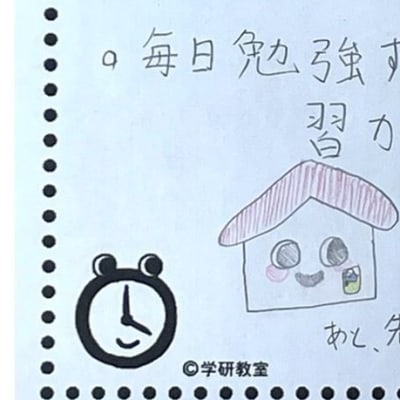 毎日勉強す
習カ
あと、先
©学研教室